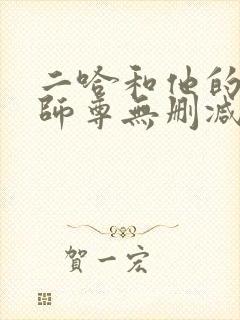 二哈和他的
師尊無删减
賀一宏